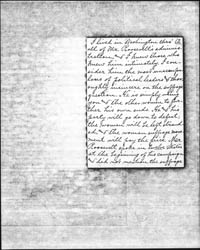 I lived in Washington thro' a
ll of Mr. Roosevelt's adminis
tration, & I know those who
knew him intimately. I con
sider him the most unscrupu
lous of political leaders & thor
oughly insincere on the suffrage
question. He is simply using
you & the other women to fur
ther his own ends. He & his
party will go down to defeat,
the women will be left strand
ed, & the woman suffrage move
ment will pay the price. Mr.
Roosevelt spoke in twelve States
at the beginning of his campaign
& did not mention the suffrage